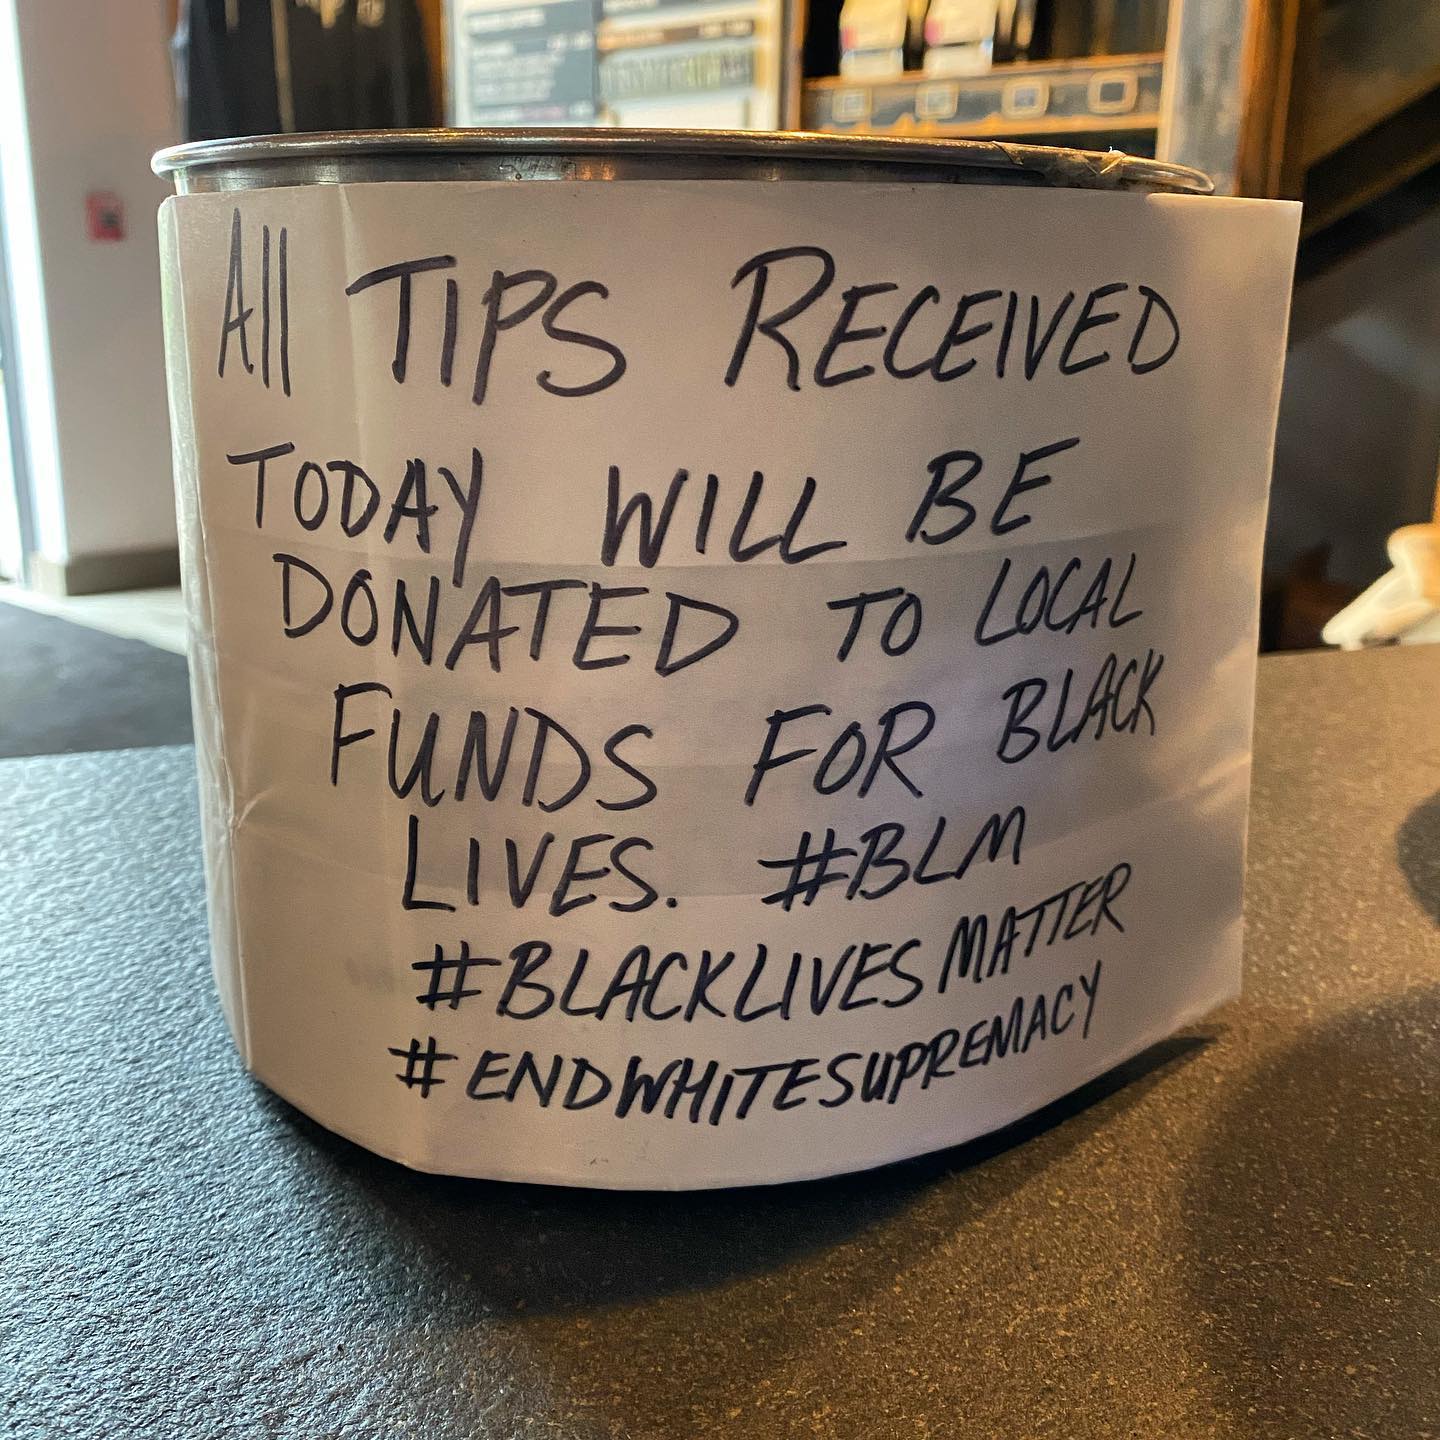 All TIPS RECEIVED
TODAY WILL BE
DONATED TO LOCAL
FUNDS FOR BLACK
LIVES. #BLM
#BLACKLIVESMATTER
#ENDWHITESUPREMACY